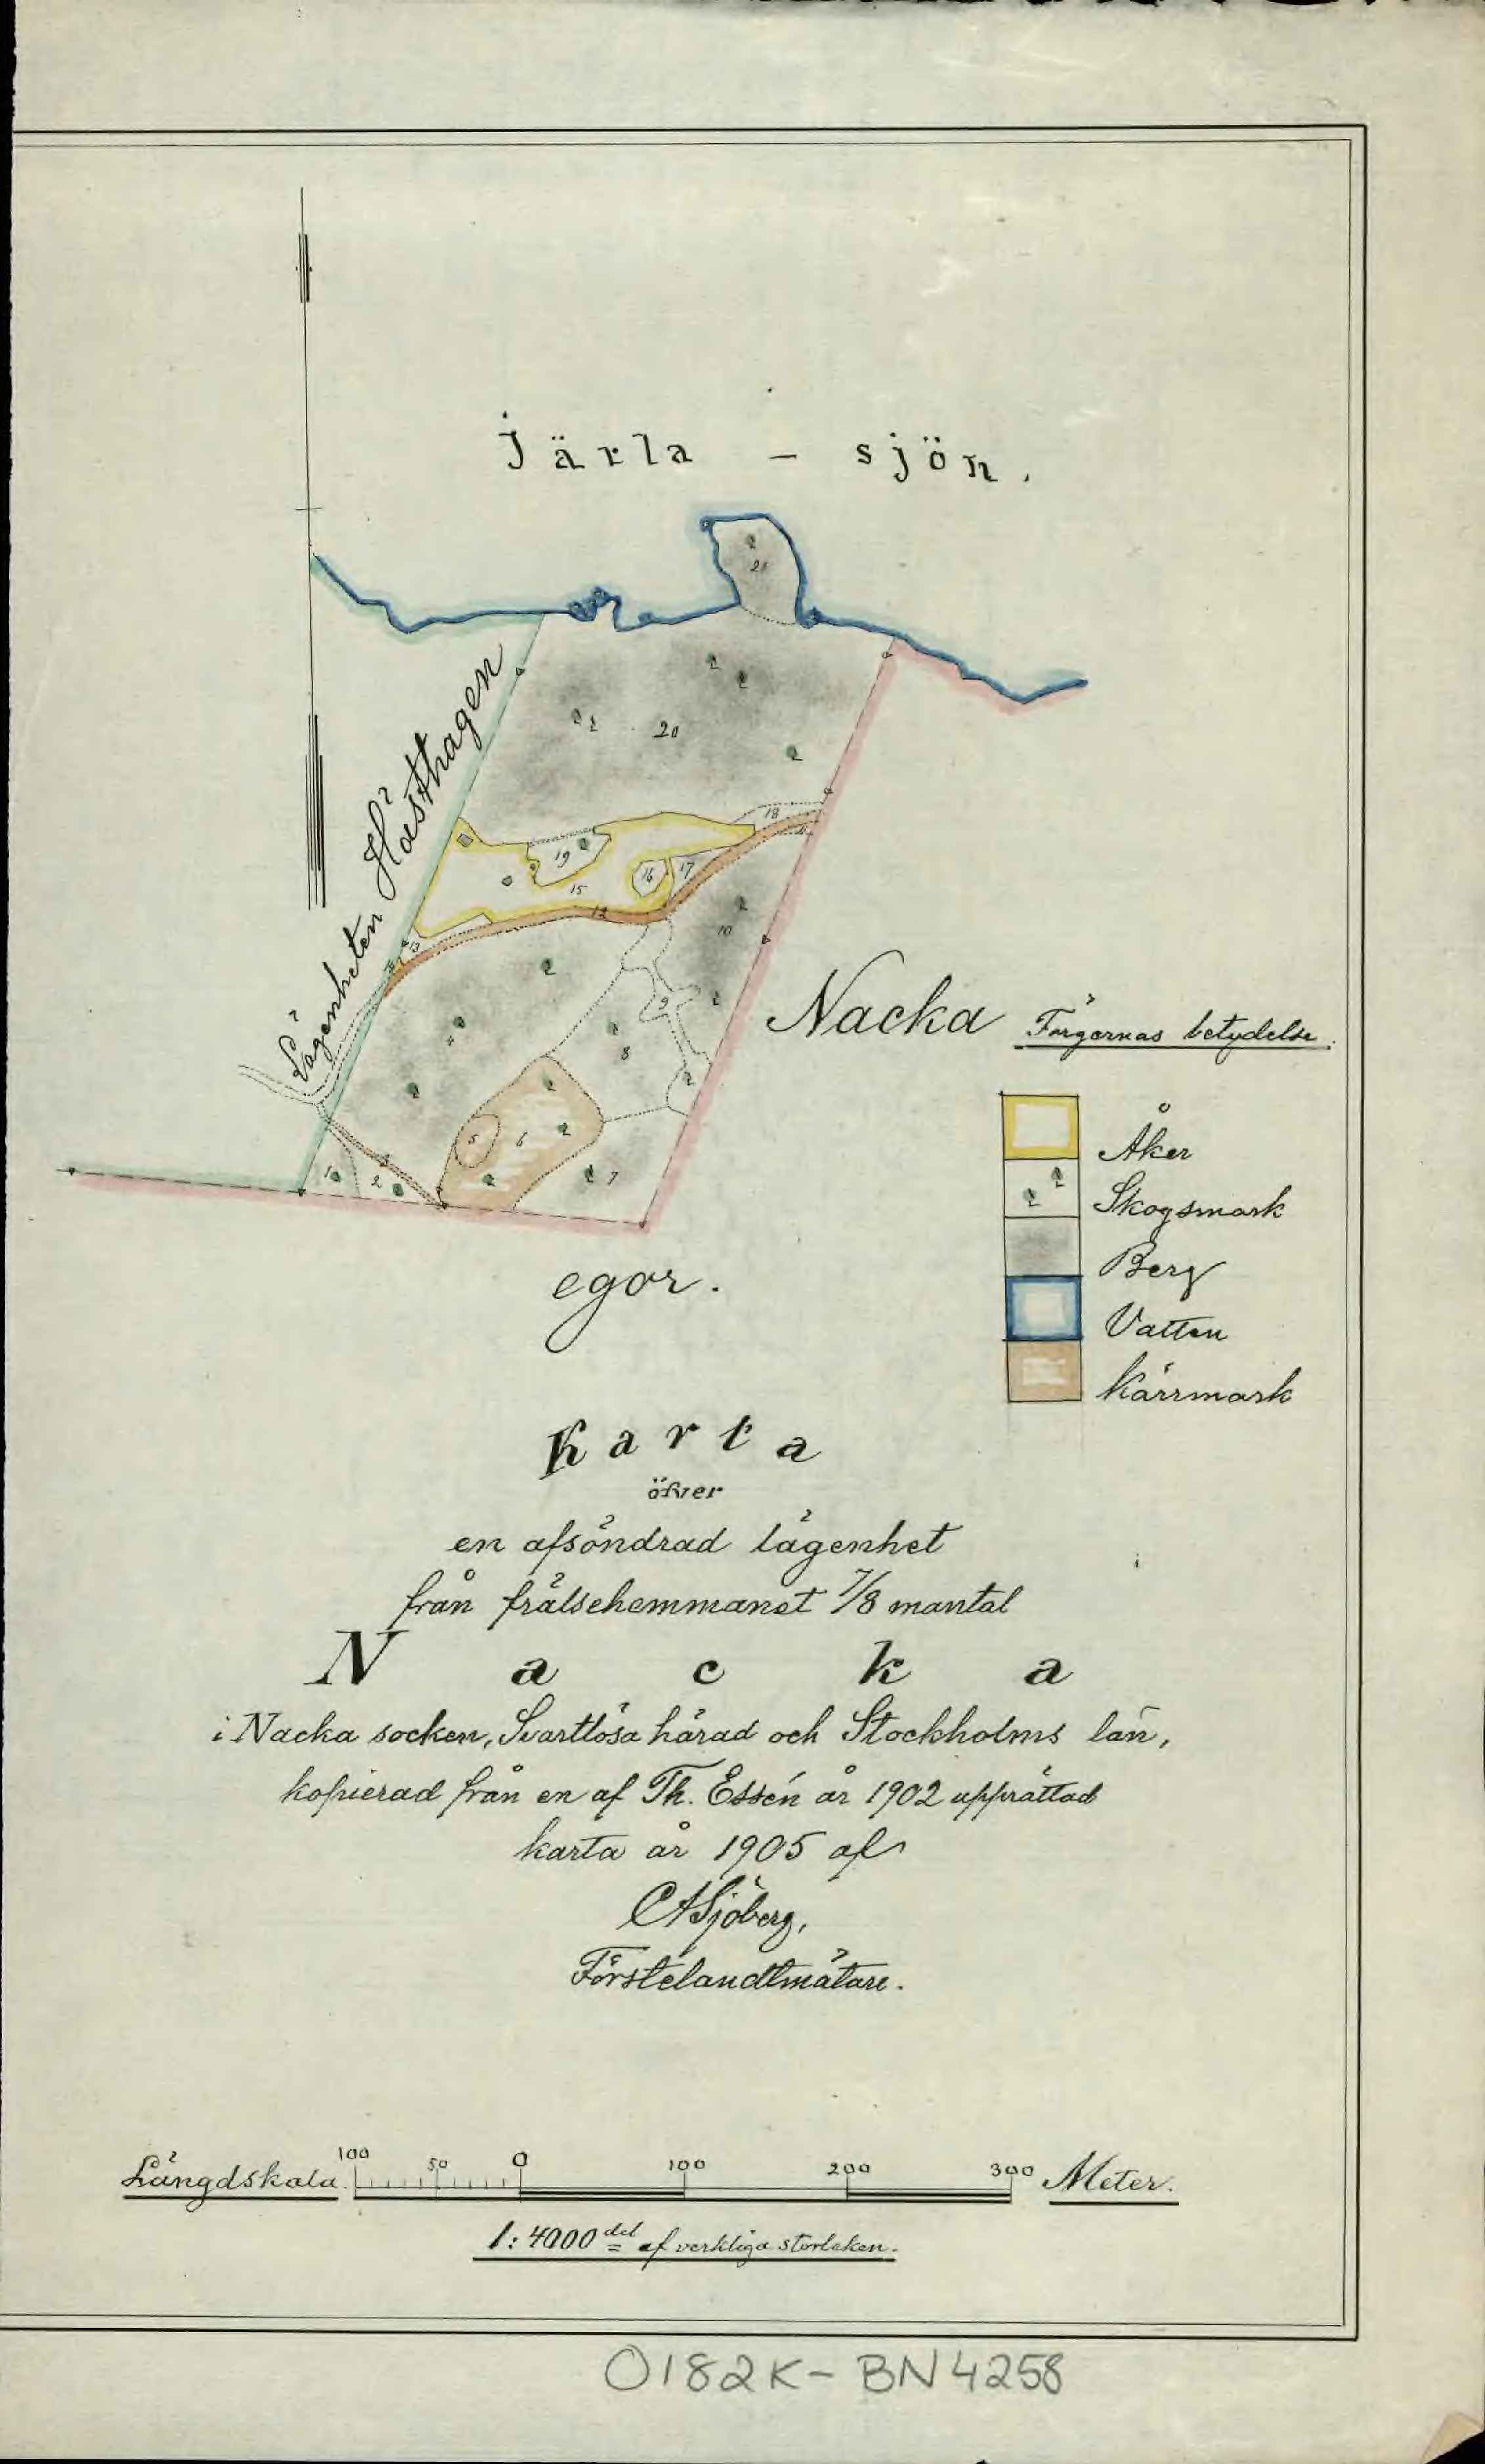 Järla - sjön.
21
20
Lägenheten Hästhagen
18
19
16
17
15
12
13
10
9
4
8
5
6
1
2
7
Nacka
egor.
Färgernas betydelse.
Åker
Skogsmark
Berg
Vatten
Kärrmark
Karta
öfver
en afsöndrad lägenhet
från frälsehemmanet 7/8 mantal
Nacka
i Nacka socken, Svartlösa härad och Stockholms län,
kopierad från en af Th. Essén år 1902 upprättad
karta år 1905 af
CASjöberg,
Förstelandtmätare.
Längdskala. 100 50 0 100 200 300 Meter.
1:4000 del af verkliga storleken.
0182K-BN4258